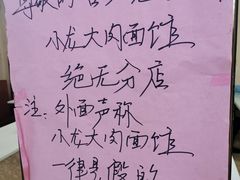 小龙大肉面馆
绝无分店
注：外面声称
小龙大肉面馆
一律是假的